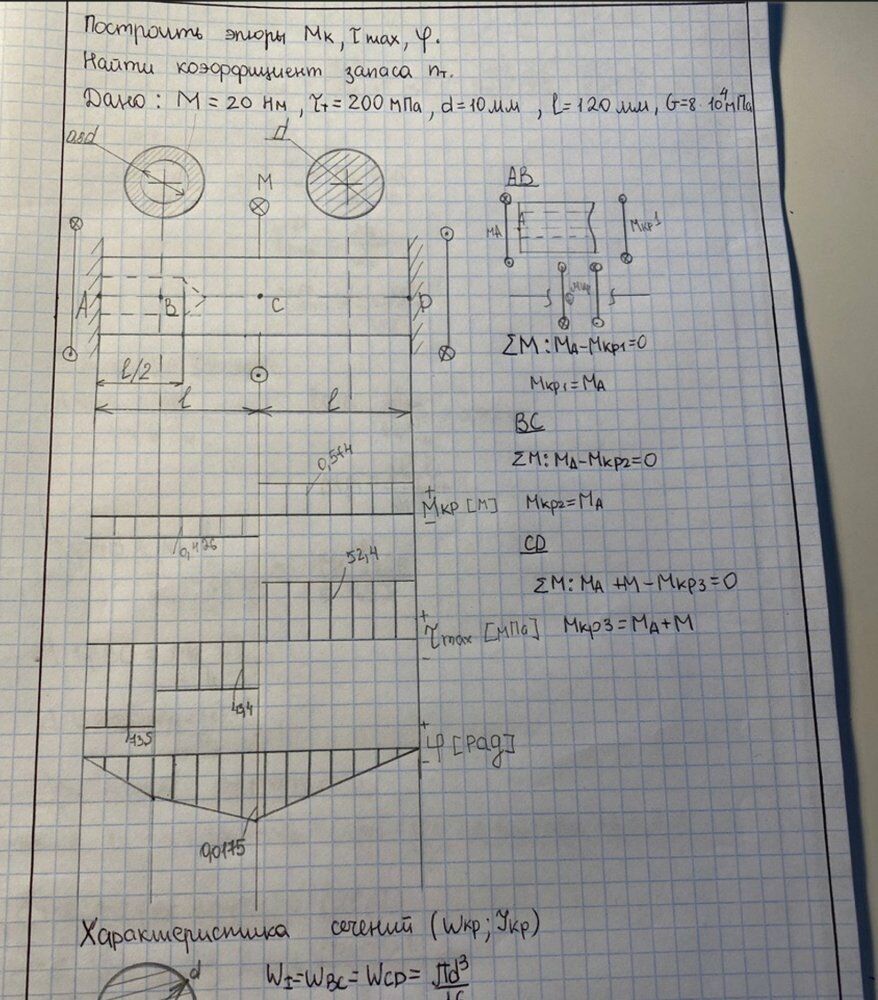 Построить эпюры Mк, τmax, φ.
Найти коэффициент запаса nт.
Дано: M = 20 Нм, τт = 200 мПа, d = 10 мм, l = 120 мм, G = 8·10⁴ мПа
0,8d
d
M
A
B
C
D
l/2
l
l
AB
MA
A
Mкр1
ΣM: MA - Mкр1 = 0
Mкр1 = MA
BC
ΣM: MA - Mкр2 = 0
Mкр2 = MA
CD
ΣM: MA + M - Mкр3 = 0
Mкр3 = MA + M
+
Mкр [M]
-
52,4
+
τmax [мПа]
-
+
φ [рад]
-
0,0175
Характеристика сечений (Wкр; Jкр)
d
WI = WBC = WCD = πd³